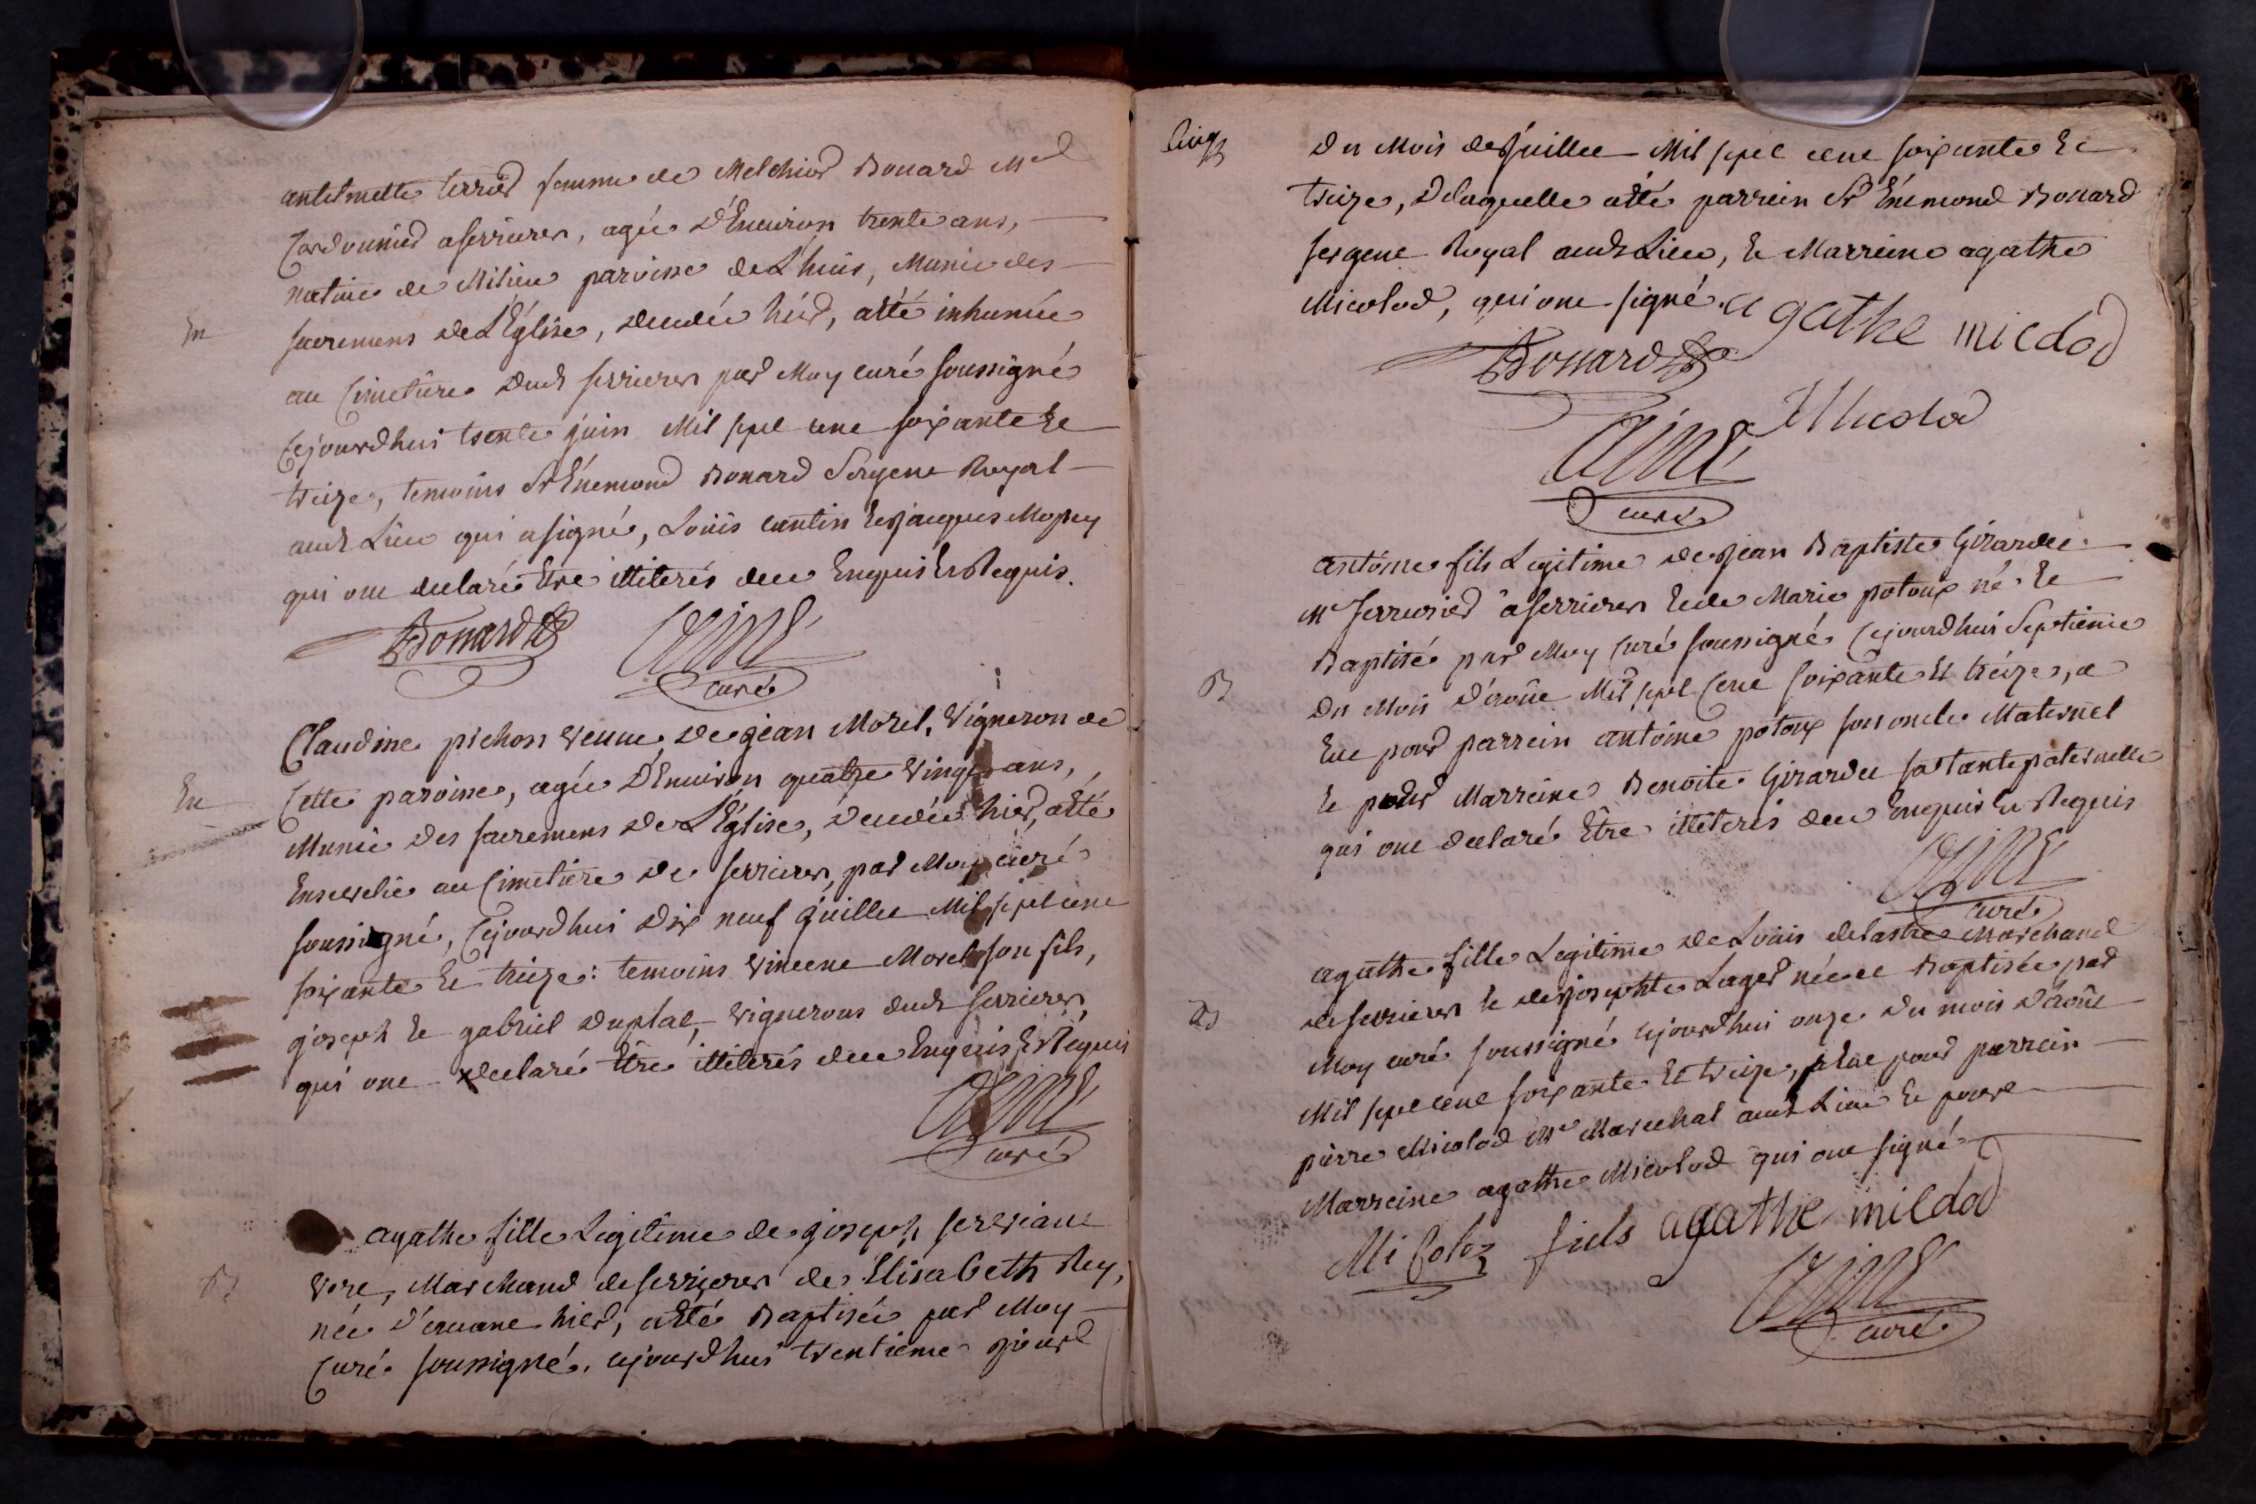 antoinette terrier femme de Melchior Bonard Md
Cordonnier a serrieres, agée d'Environ trente ans,
native de Milieu paroisse de L'huis, Munie des
En
sacremens de L'Église, decedée hier, a été inhumée
au Cimetiere dudt serrieres par Moy curé soussigné
Cejourd'hui trente juin Mil sept cent soixante Et
treize, temoins Sr Enemond Bonard Sergent Royal
audt Lieu qui a signé, Loüis cantin Et jacques
qui ont declaré Etre illiterés deue Enquis Et Requis.
Bonard Aimé
curé
Claudine pichon veuve de jean Morel, Vigneron de
En
Cette paroisse, agée d'Environ quatre Vingts ans,
Munie des sacremens de L'Église, decedée hier, a été
Ensevelie au Cimetiere de serrieres, par Moy curé
soussigné, Cejourd'hui dix neuf juillet Mil sept cent
soixante Et treize: temoins Vincent Morel son fils,
joseph Et gabriel duplat, Vignerons dudt serrieres,
qui ont declaré Etre illiterés deue Enquis Et Requis
Aimé
curé
agathe fille Legitime de joseph
B
Marchand de serrieres de Elisabeth Rey,
née d'avant hier, a été Baptisée par Moy
Curé soussigné, cejourd'hui trentieme jour
Cinq
du Mois de Juillet Mil sept cent soixante Et
treize, De laquelle a été parrein Sr Enemond Bonard
sergent Royal audt Lieu, Et Marreine agathe
Micolod, qui ont signé. agathe micdod
Bonard
Micolod
Aimé
curé
antoine fils Legitime de jean Baptiste Girardet
Me serrurier a serrieres Et de Marie potoux né Et
Baptisé par Moy Curé soussigné Cejourd'hui Septieme
B
du Mois d'aoûe Mil sept Cent soixante Et treize, a
Eue pour parrein antoine potoux son oncle Maternel
Et pour Marreine Benoite Girardet sa tante paternelle
qui ont declaré Etre illiterés deue Enquis Et Requis
Aimé
curé
agathe fille Legitime de Loüis delastre Marchand
de serrieres Et de josephte Lager née et Baptisée par
B
Moy curé soussigné cejourd'hui onze du mois d'aoûe
Mil sept cent soixante Et treize, a Eue pour parrein
pierre Micolod Me Marechal audt Lieu Et pour
Marreine agathe Micolod qui ont signé
Mi Coloz fiels agathe mildod
Aimé
curé